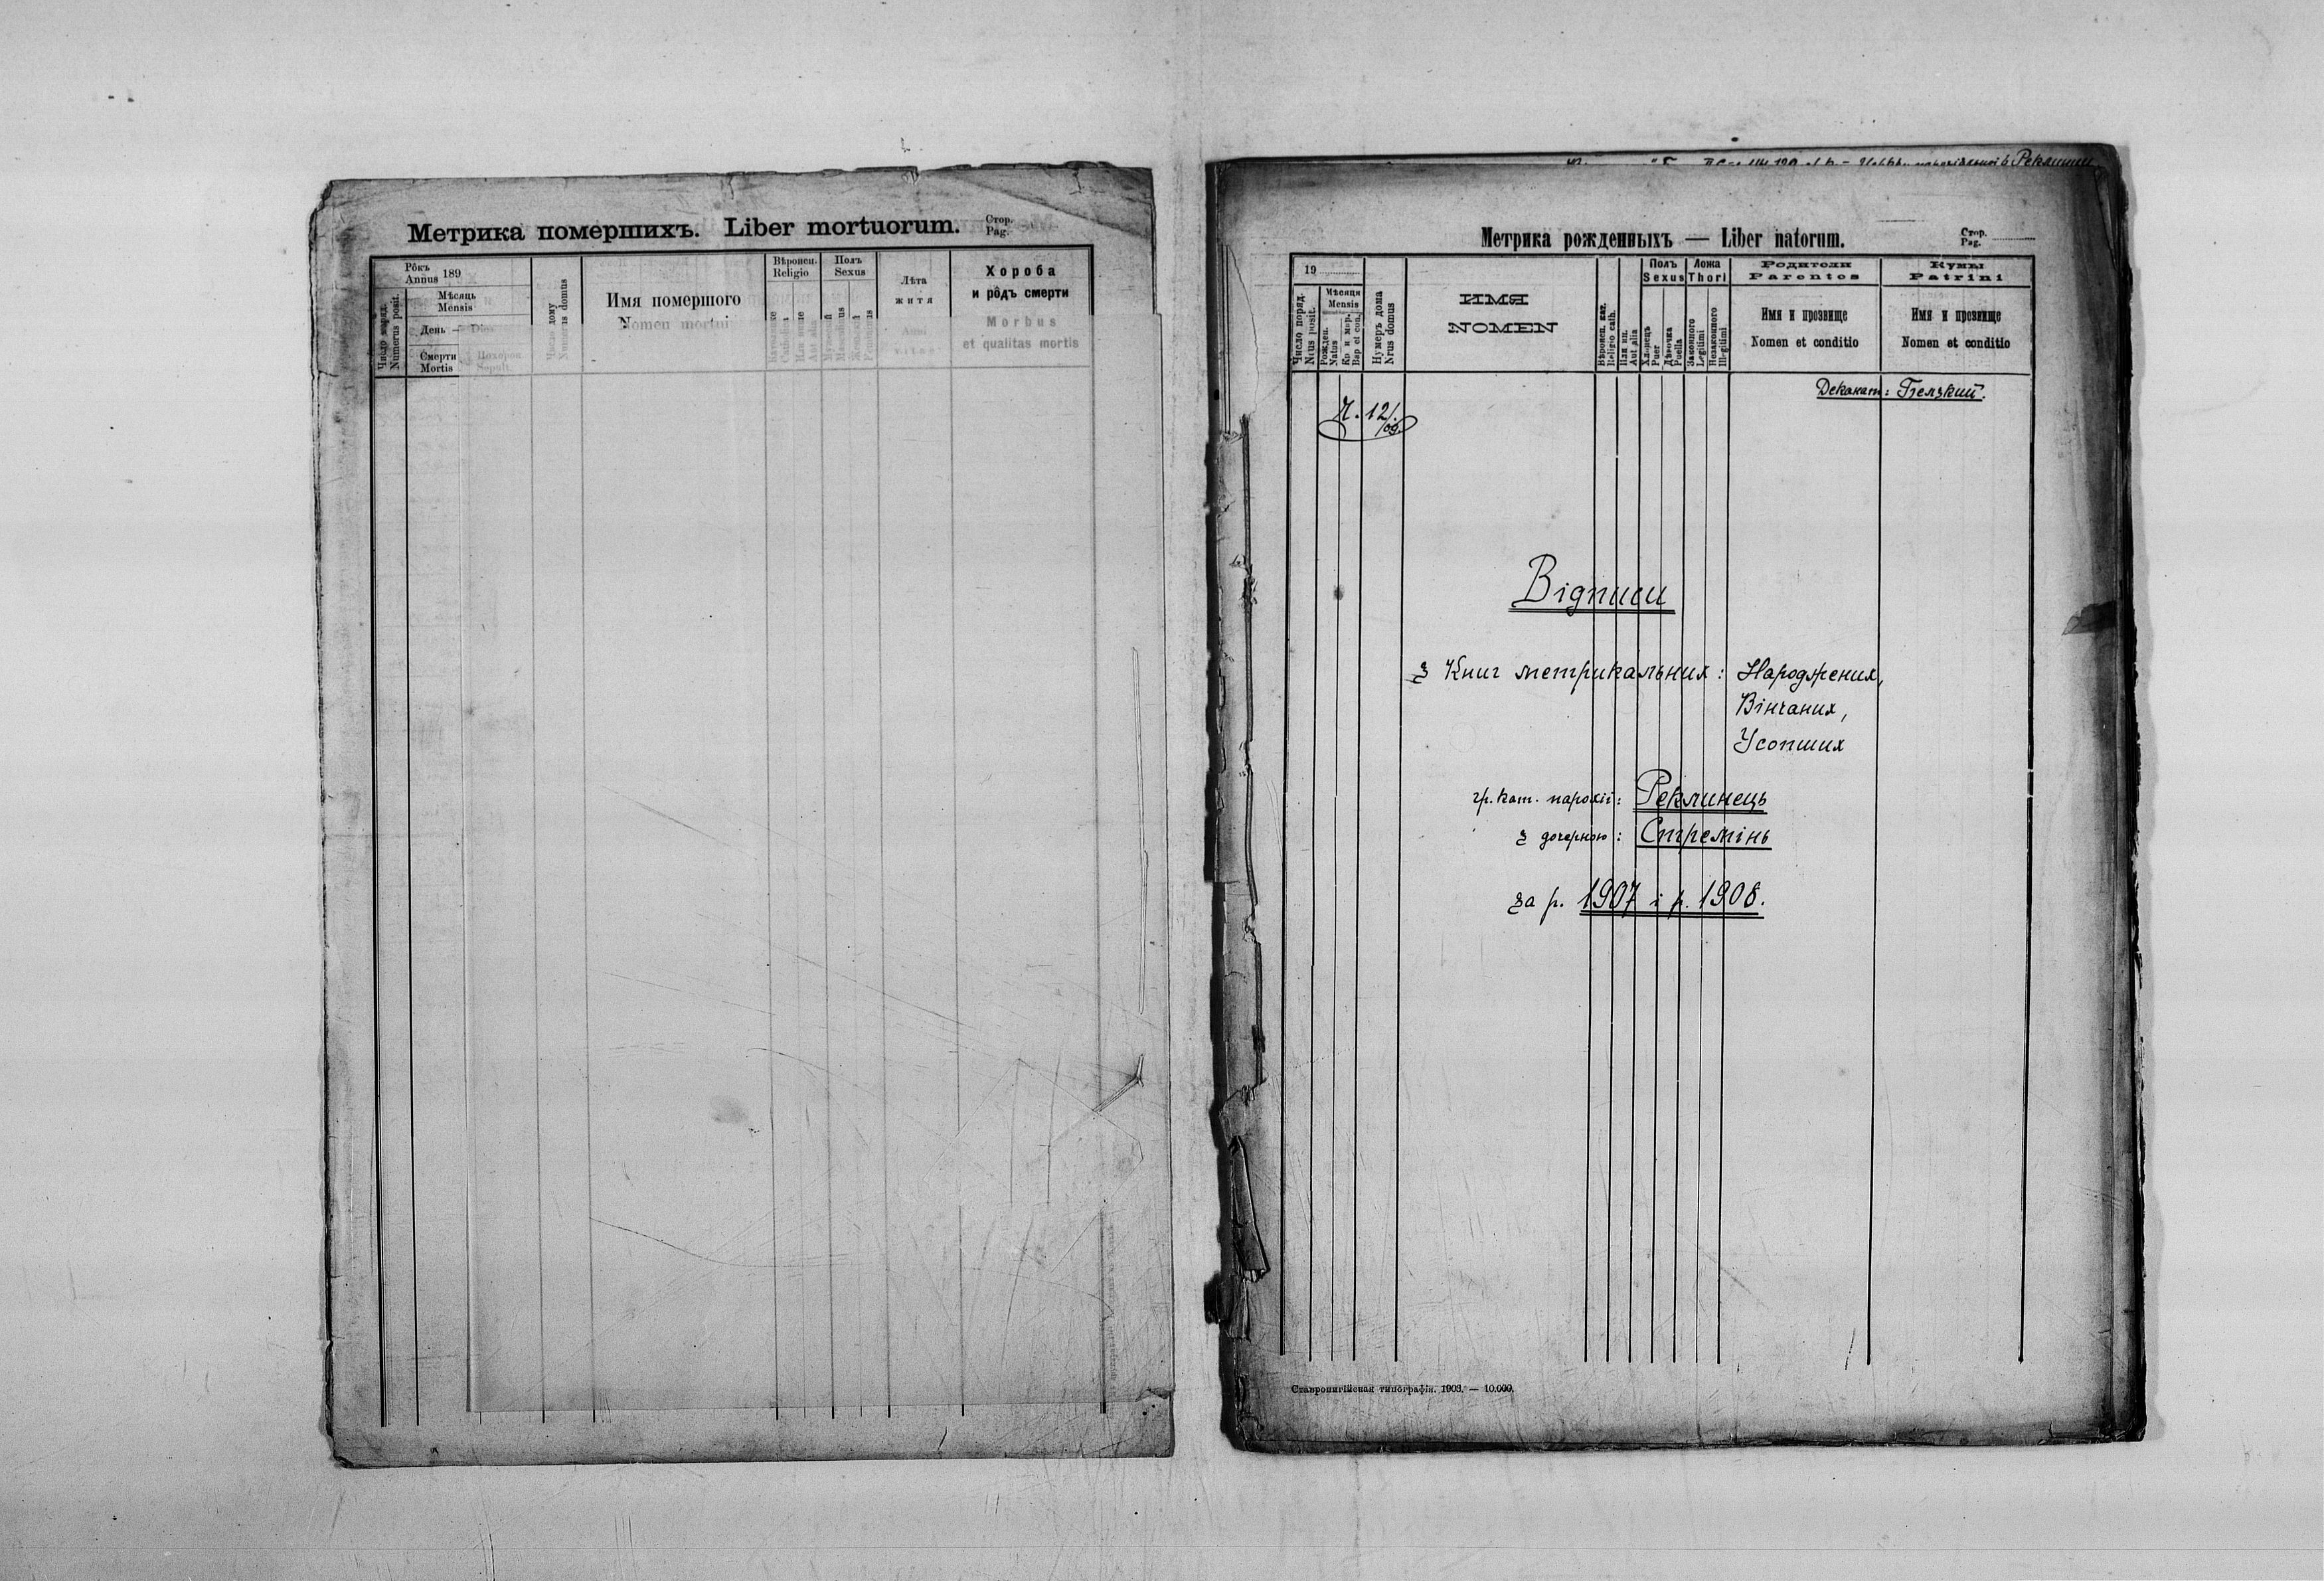 Метрика померших​ъ. Liber mortuorum.
Стор.
Pag.
Рôкъ
Annus 189
Мѣсяць
Mensis
День — Dies
Смерти
Mortis
Похорон.
Sepult.
Число поряд.
Numerus posit.
Число дому
Numerus domus
Имя помершого
Nomen mortui
Вѣроисп.
Religio
Полъ
Sexus
Лѣта
житя
Anni
vitae
Хороба
и рôдъ смерти
Morbus
et qualitas mortis
Реклинец
Метрика рожденныхъ — Liber natorum.
Стор.
Pag.
19
Число поряд.
Nrus posit.
Мѣсяця
Mensis
Рожден.
Natus
Кр. и мѵр.
Bap et con.
Нумеръ дома
Nrus domus
ИМЯ
NOMEN
Вѣроисп. кат.
Religio cath.
Или ин.
Aut alia
Полъ
Sexus
Хл-рецъ
Puer
Дѣвочка
Puella
Ложа
Thori
Законного
Legitimi
Незаконного
Illegitimi
Родители
Parentes
Имя и прозвище
Nomen et conditio
Кумы
Patrini
Имя и прозвище
Nomen et conditio
Деканат: Белзкий.
Ч. 12/09.
Відписи
з Книг метрикальних: Народжених,
Вінчаних,
Усопших
гр. кат. парохії: Реклинець
з дочерною: Стремінь
за р. 1907 і р. 1908.
Ставропигійская типографія. 1903. — 10.000.